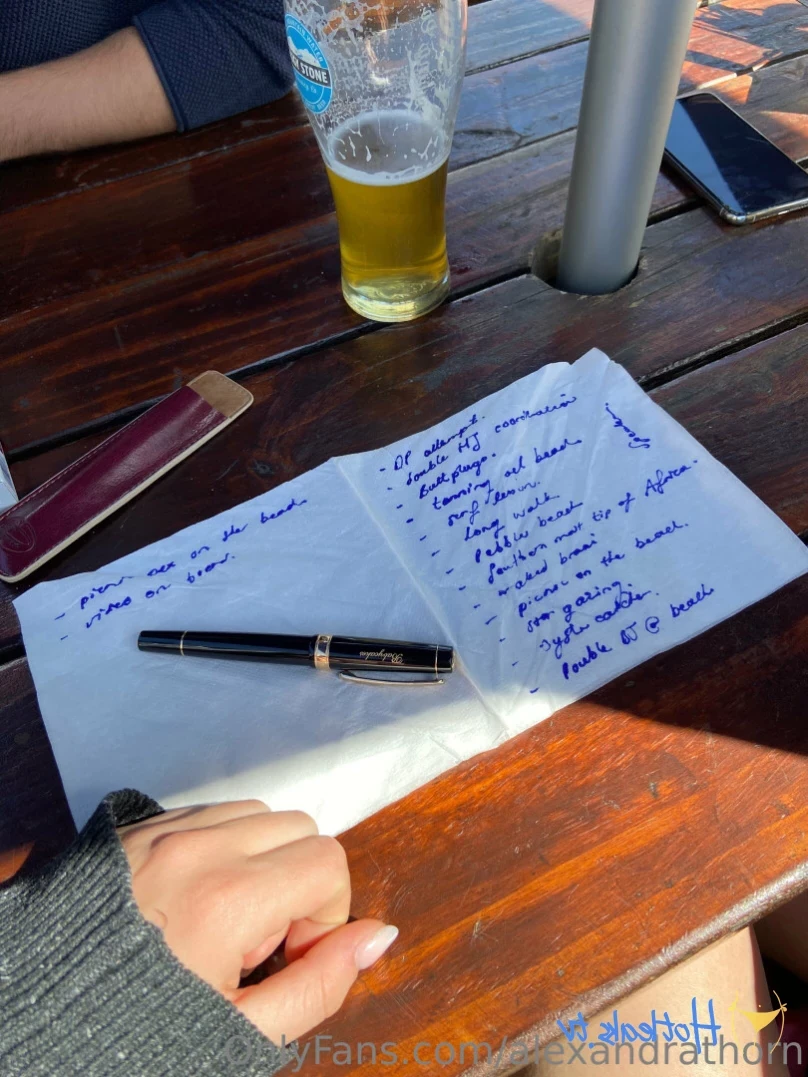 STONE
- picnic sex on the beach
- video on boat.
- DP attempt.
- double HJ coordination
- Buttplugs.
- tanning at beach
- surf lesson.
- long walk
- Pebble beach
- Southern most tip of Africa.
- naked braai
- picnic on the beach.
- Star gazing.
- Double BJ @ beach
Babycakes
Hotleaks.tv
OnlyFans.com/alexandrathorn